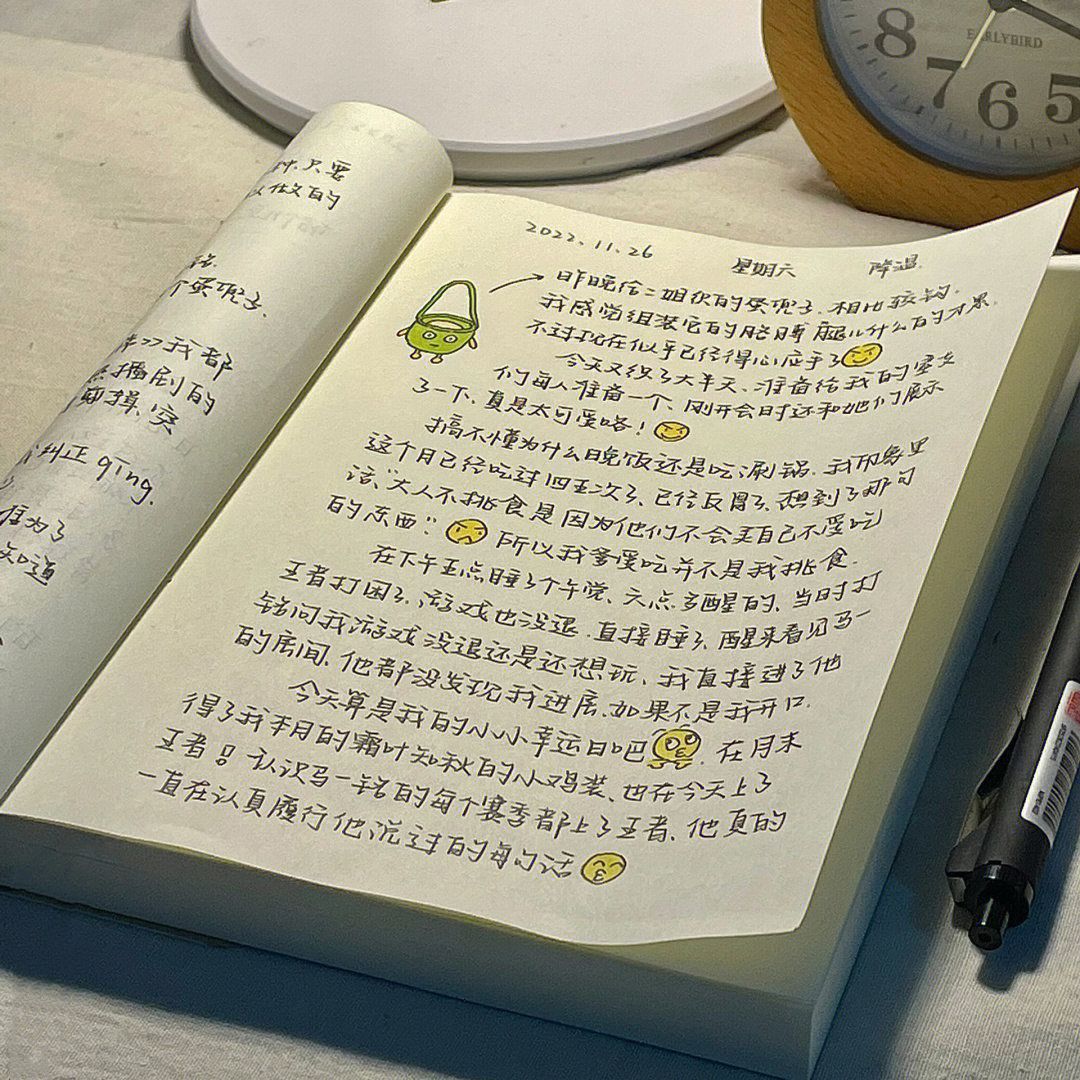 8 7 6 5
EARLYBIRD
只要
做的
个蛋兜子.
我都
播剧的
纠正 qīng.
知道
2022.11.26 星期六 降温.
昨晚给二姐织的蛋兜子. 相比较钩.
我感觉组装它的胳膊腿儿什么的才累.
不过现在似乎已经得心应手了
今天又织了大半天、准备给我的室友
们每人准备一个、刚开会时还和她们展示
了一下、真是太可爱咯!
搞不懂为什么晚饭还是吃涮锅. 我印象里
这个月已经吃过四五次了、已经反胃了、想到了那句
话“大人不挑食是因为他们不会买自己不爱吃
的东西” 所以我爹爱吃并不是我挑食.
在下午五点睡了个午觉、六点多醒的、当时打
王者打困了、游戏也没退. 直接睡了、醒来看见马一
铭问我游戏没退还是还想玩、我直接进了他
的房间、他都没发现我进房、如果不是我开口.
今天算是我的小小幸运日吧 在月末
得了我本月的霜叶知秋的小鸡装、也在今天上了
王者!! 认识马一铭的每个赛季都上了王者、他真的
一直在认真履行他说过的每句话